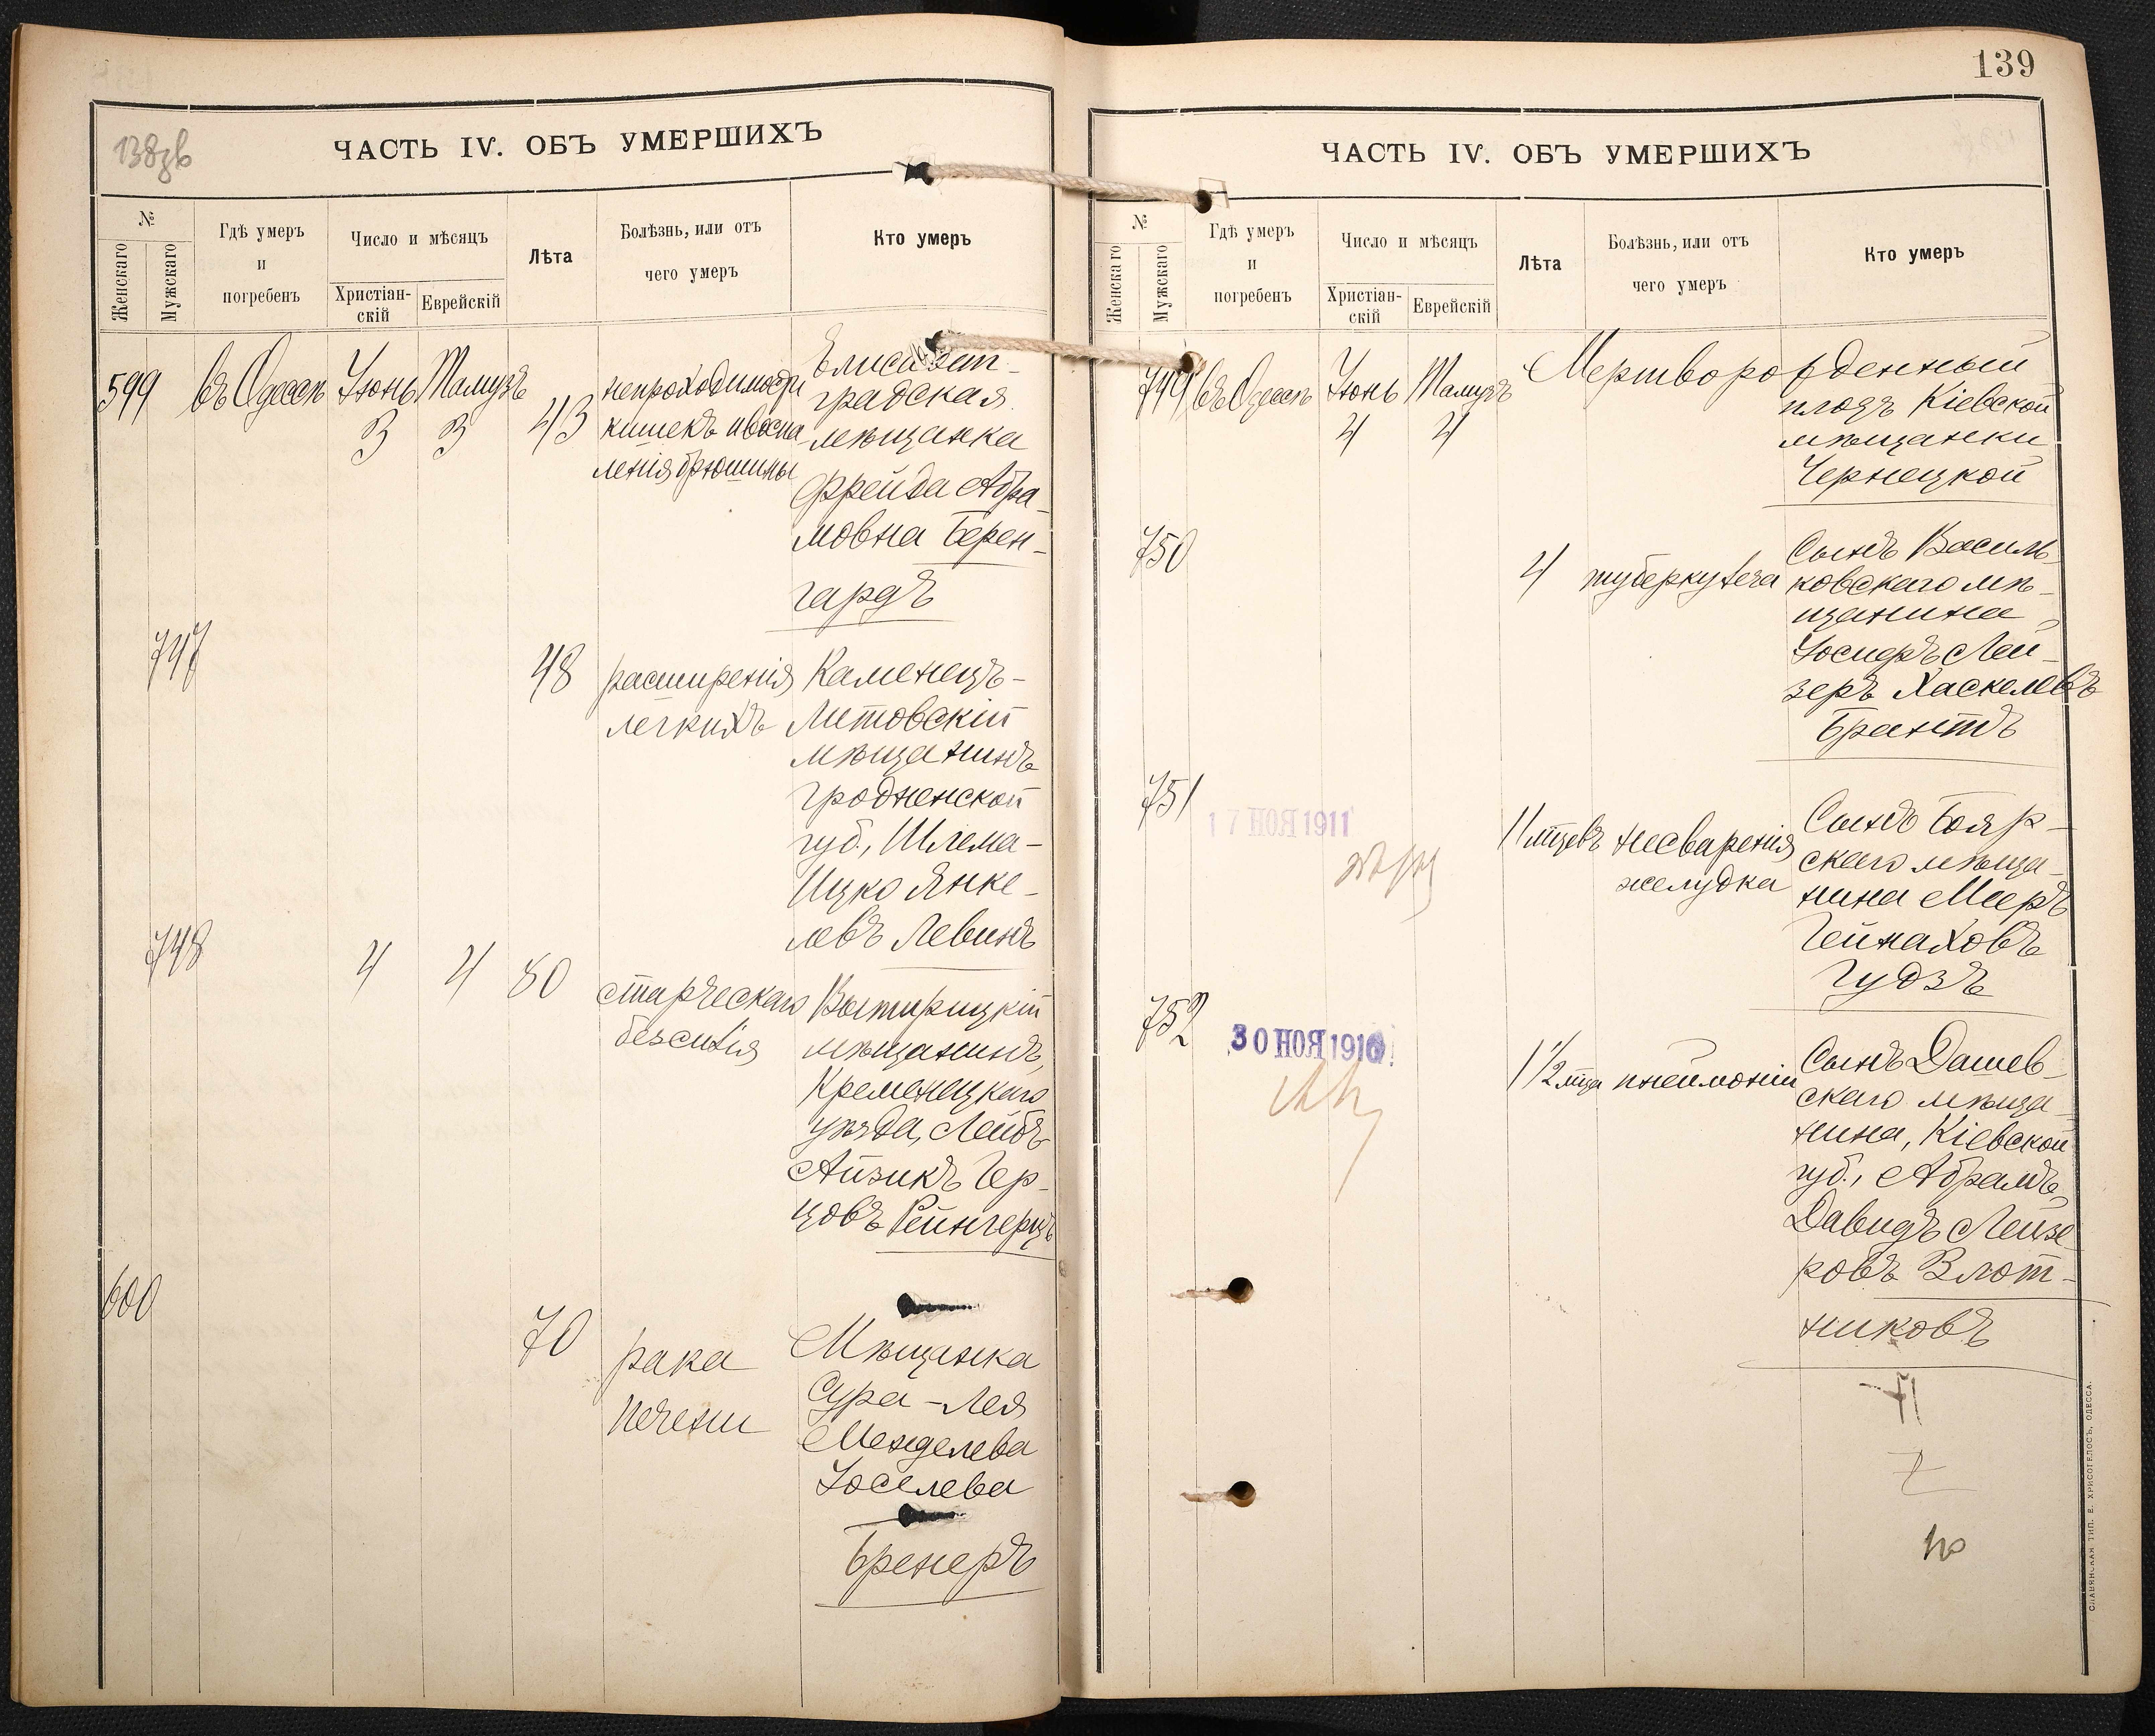 138зв
ЧАСТЬ IV. ОБЪ УМЕРШИХЪ
№
Женскаго
Мужскаго
Гдѣ умеръ
и
погребенъ
Число и мѣсяцъ
Христіан-
скій
Еврейскій
Лѣта
Болѣзнь, или отъ
чего умеръ
Кто умеръ
599
въ Одессѣ
Іюнь
3
Тамузъ
3
43
непроходимости
кишекъ и воспа
ленія брюшины
Елисавет-
градская
мѣщанка
Фрейда Абра-
мовна Берен-
гардъ
747
48
расширенія
легкихъ
Каменецъ-
Литовскій
мѣщанинъ
Гродненской
губ., Шлема-
Ицко Янке-
левъ Левинъ
748
4
4
80
старческаго
безсилія
мѣщанинъ,
Кременецкаго
уѣзда, Лейбъ
Айзикъ Гер-
цовъ Рейнгерцъ
600
70
рака
печени
Мѣщанка
Сура-Лея
Менделева
Іоселева
Бренеръ
139
ЧАСТЬ IV. ОБЪ УМЕРШИХЪ
№
Женскаго
Мужскаго
Гдѣ умеръ
и
погребенъ
Число и мѣсяцъ
Христіан-
скій
Еврейскій
Лѣта
Болѣзнь, или отъ
чего умеръ
Кто умеръ
749
въ Одессѣ
Іюнь
4
Тамузъ
4
Мертворожденный
плодъ Кіевской
мѣщанки
Чернецкой
750
4
туберкулеза
Сынъ Василь
ковскаго мѣ-
щанина
Іосифъ Лей-
зеръ Хаскелевъ
Брантъ
751
17 НОЯ 1911
11 мцевъ
несваренія
желудка
Сынъ Бояр-
скаго мѣща-
нина Мееръ
Гейнаховъ
Гудзъ
752
30 НОЯ 1910
1½ мца
пнеймоніи
Сынъ Дашев-
скаго мѣща-
нина, Кіевской
губ., Абрамъ,
Давидъ Лейзе
ровъ Злот-
никовъ
СЛАВЯНСКАЯ ТИП. Е. ХРИСОГЕЛОСЪ, ОДЕССА.